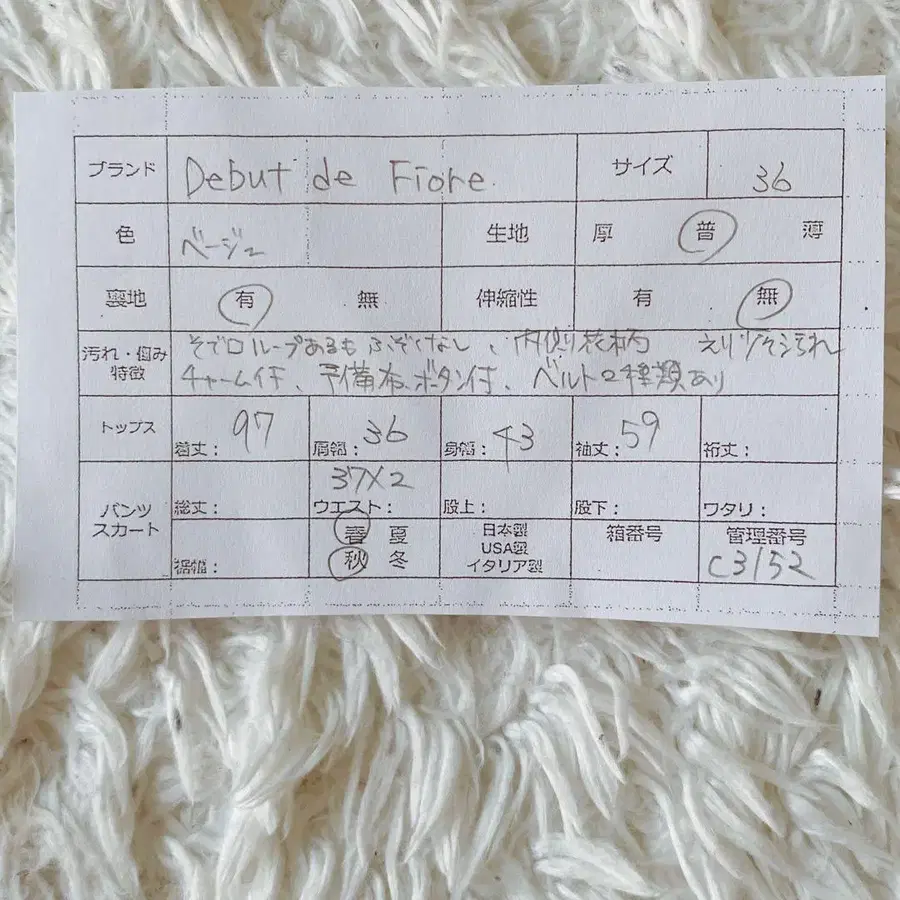 ブランド Debut de Fiore サイズ 36
色 ベージュ 生地 厚 普 薄
裏地 有 無 伸縮性 有 無
汚れ・傷み 特徴 そで口ループあるもふぞくなし、内側花柄 えり少々汚れ
チャーム付、予備布、ボタン付、ベルト2種類あり
トップス 着丈: 97 肩幅: 36 身幅: 43 袖丈: 59 裄丈:
パンツ スカート 総丈: ウエスト: 37×2 股上: 股下: ワタリ:
裾幅: 春 夏 秋 冬 日本製 USA製 イタリア製 箱番号 管理番号 C3152